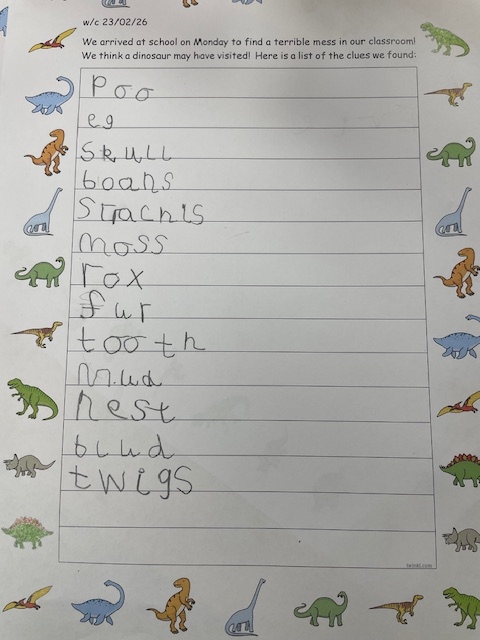 w/c 23/02/26
We arrived at school on Monday to find a terrible mess in our classroom!
We think a dinosaur may have visited! Here is a list of the clues we found:
Poo
eg
Skull
boans
Strachis
moss
rox
fur
tooth
mud
nest
blud
twigs
twinkl.com